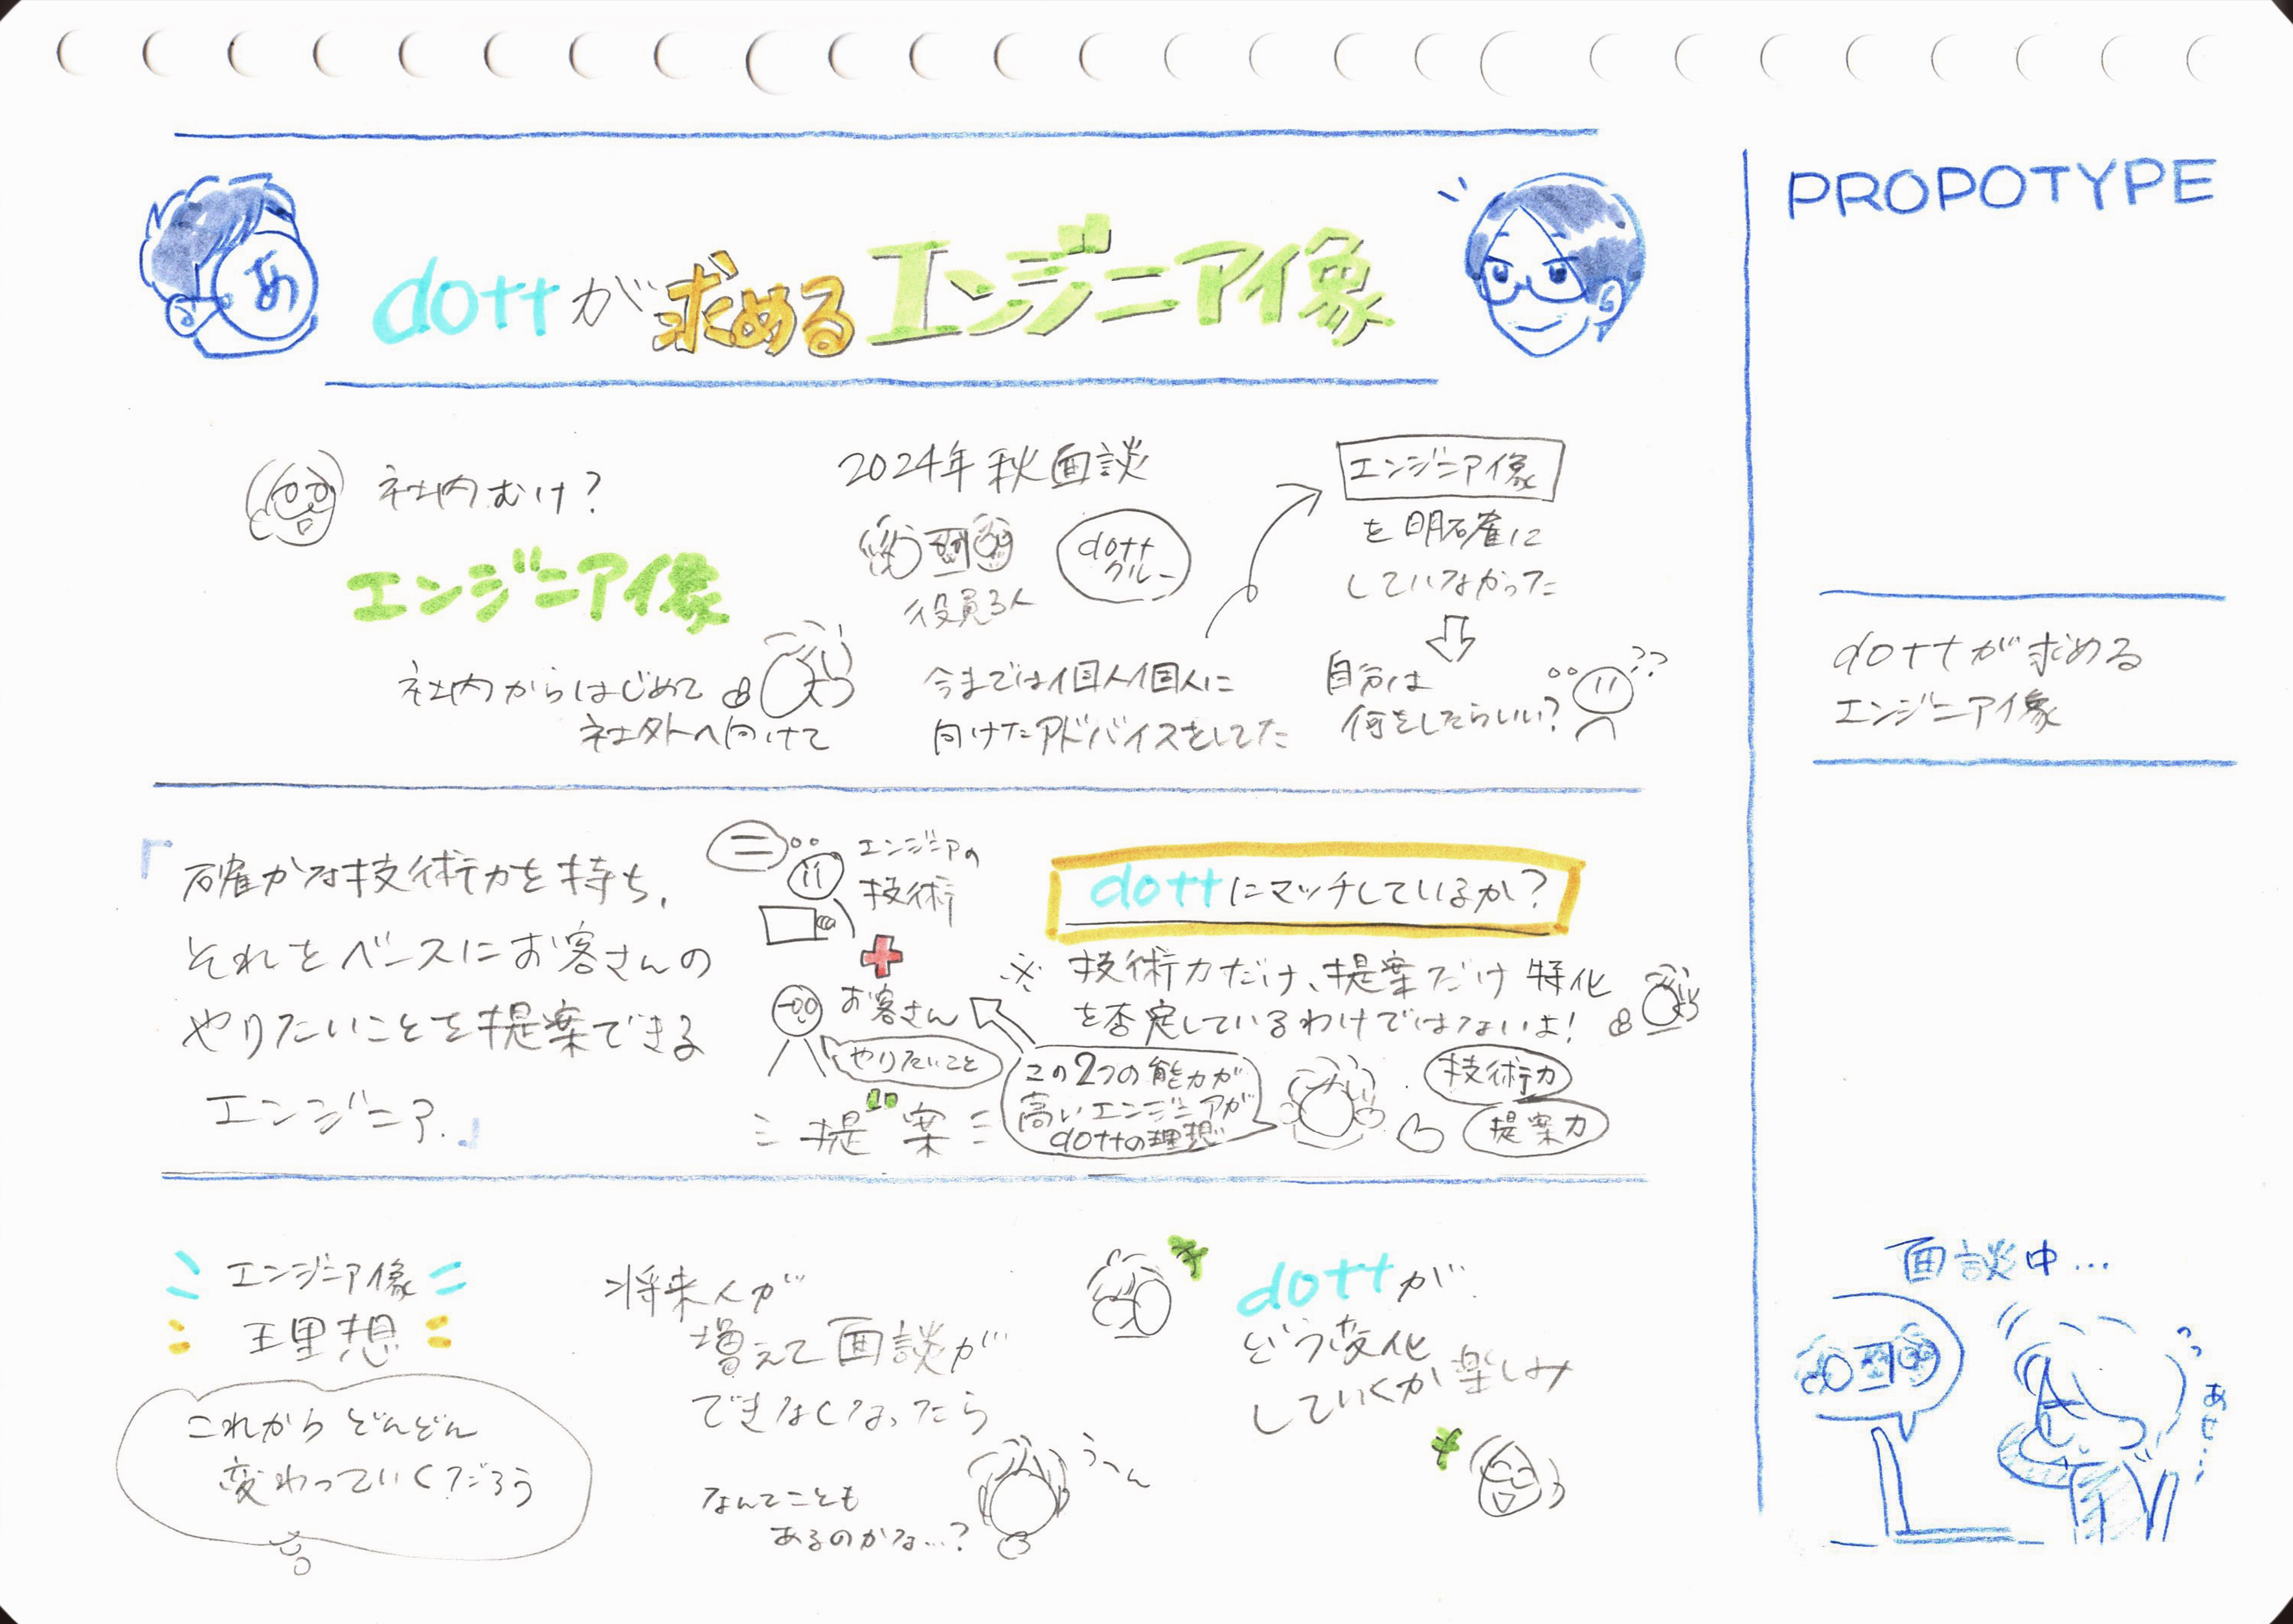 dottが求めるエンジニア像
あ
社内むけ?
エンジニア像
社内からはじめて
社外へ向けて
2024年秋面談
役員3人
dott
クルー
今までは個人個人に
向けたアドバイスをしてた
エンジニア像
を明確に
していなかった
自分は
何をしたらいい?
『確かな技術力を持ち、
それをベースにお客さんの
やりたいことを提案できる
エンジニア.』
エンジニアの
技術
お客さん
やりたいこと
提案
dottにマッチしているか?
※技術力だけ、提案だけ特化
を否定しているわけではないよ!
この2つの能力が
高いエンジニアが
dottの理想
技術力
提案力
エンジニア像
理想
これからどんどん
変わっていくだろう
将来人が
増えて面談が
できなくなったら
なんてことも
あるのかな…?
うーん
dottが
どう変化
していくか楽しみ
PROPOTYPE
dottが求める
エンジニア像
面談中…
あせ…